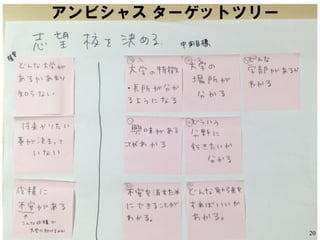 アンビシャス ターゲットツリー
志望校を決める
中間目標
障害
どんな大学が
あるかあまり
知らない
大学の特徴
・長所が分か
るようになる
大学の
場所が
分かる
どんな
学部があるか
わかる
将来がりたい
事が決まって
いない
興味がある
ことがわかる
どういう
分野に
行きたいか
分かる
成績に
不安がある
こんな成績で
大学に行けるのか
不安を消すため
にできることが
わかる。
どんな勉強を
すればいいか
わかる。
20